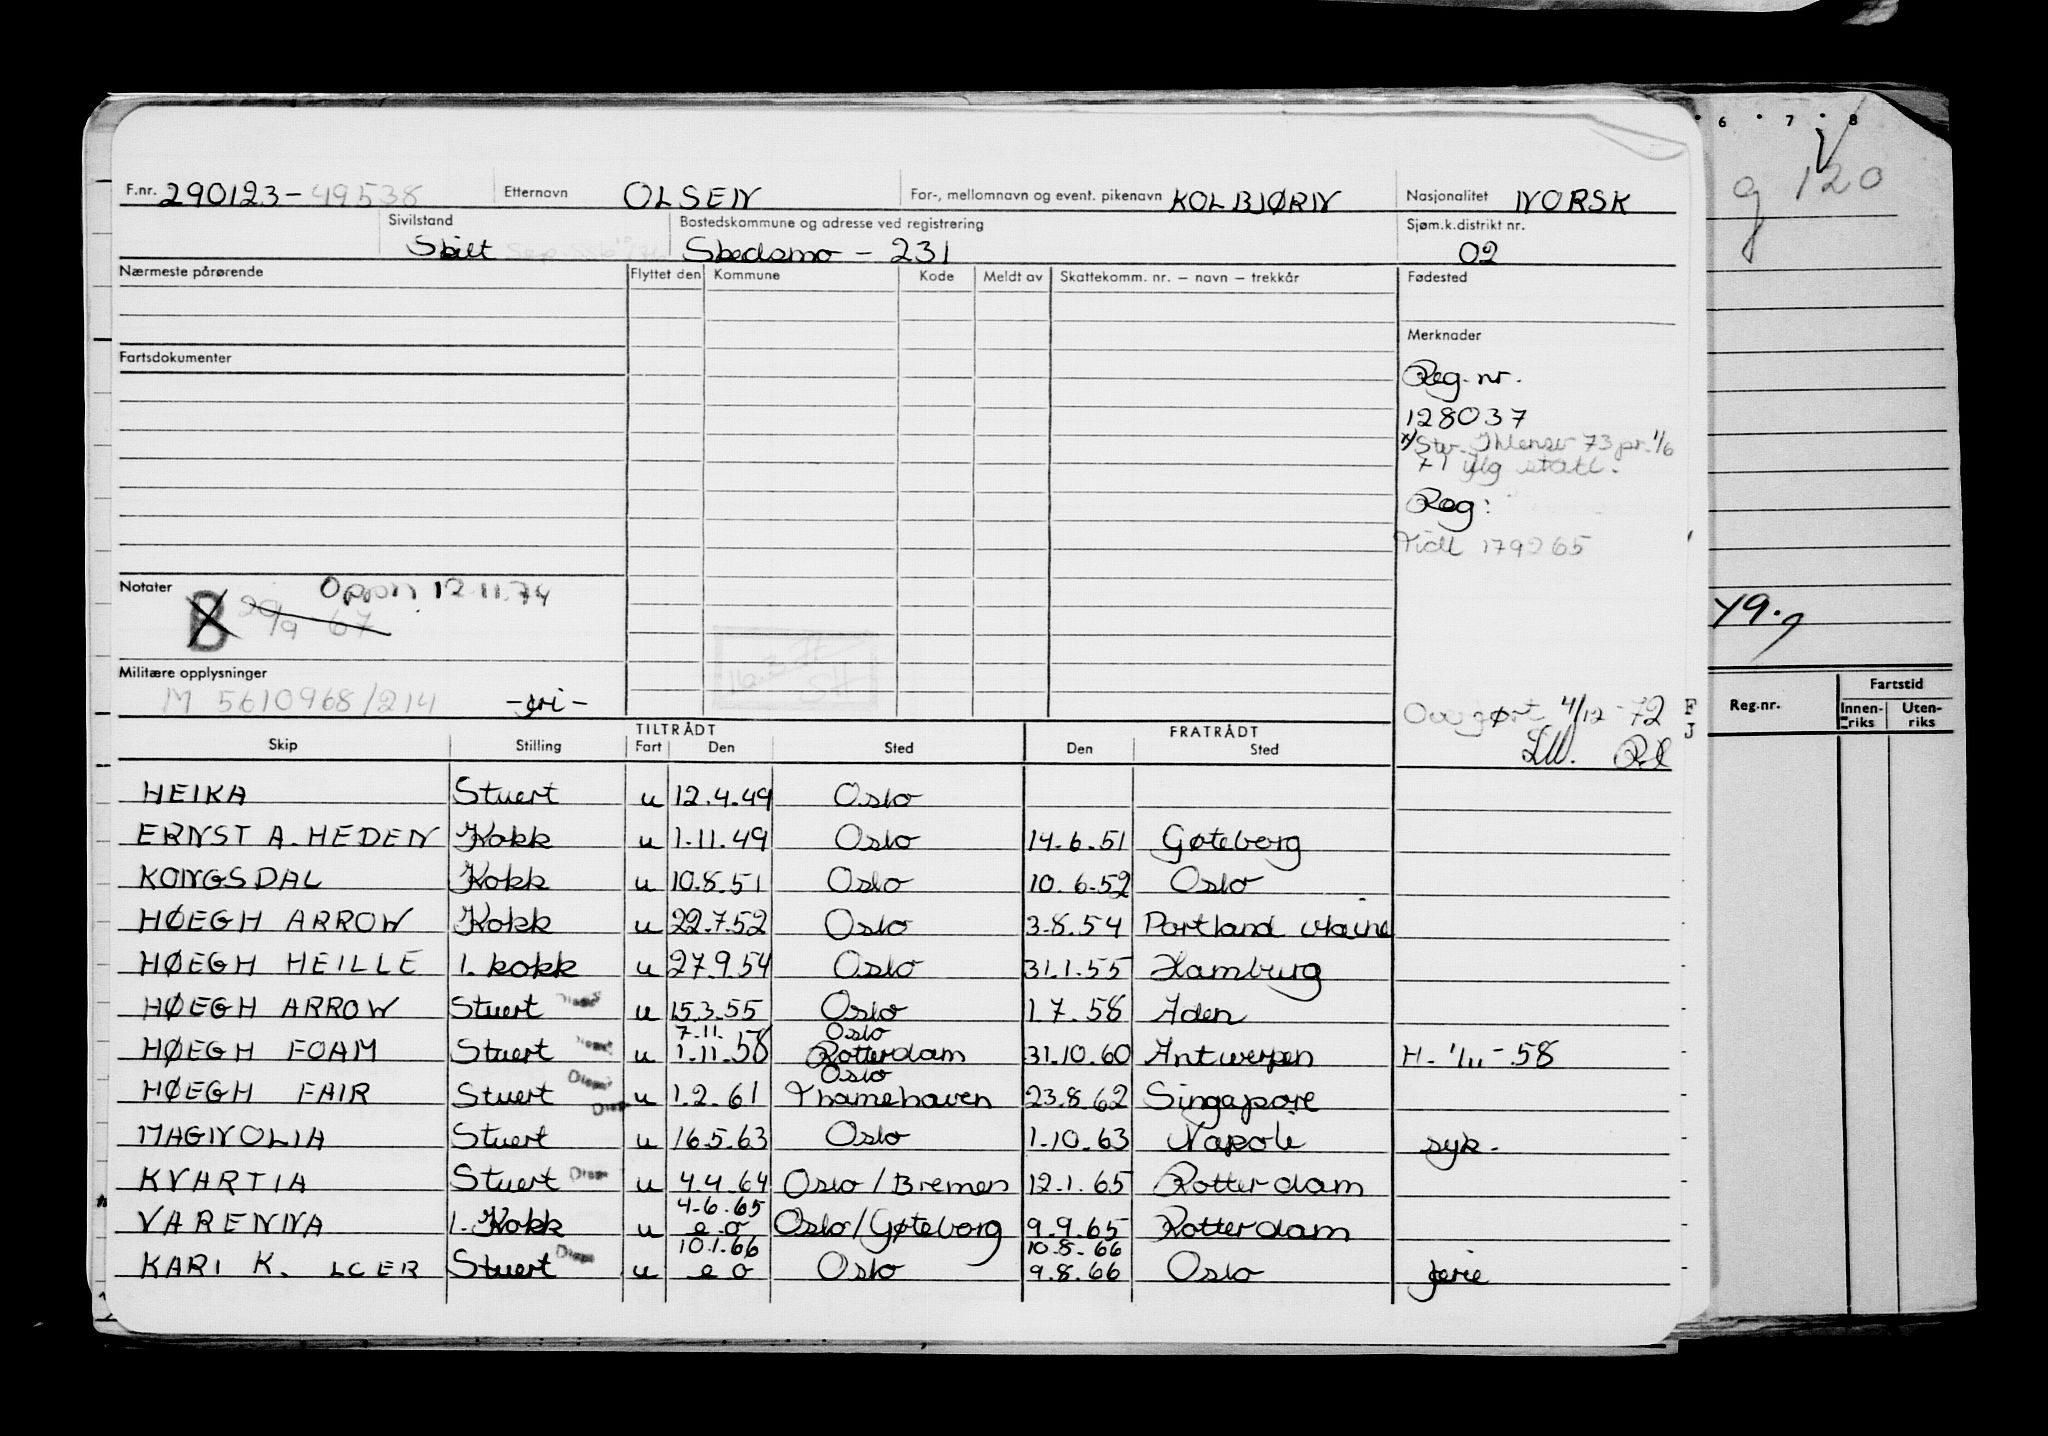 F.nr. 290123-49538 Etternavn OLSEN For-, mellomnavn og event. pikenavn KOLBJØRN Nasjonalitet NORSK
Sivilstand Skilt Bostedskommune og adresse ved registrering Skedsmo - 231 Sjøm.k.distrikt nr. 02
Nærmeste pårørende Flyttet den Kommune Kode Meldt av Skattekomm. nr. — navn — trekkår Fødested
Merknader
Fartsdokumenter
Reg. nr.
128037
73 pr. 1/6
71 statl.
Reg:
Tidl 179265
Notater Oppn 12.11.74
B 29/9 67
16.3.77
SH
Militære opplysninger
M 5610968/214 -fri-
Overgørt 4/12 -72
TILTRÅDT FRATRÅDT
Skip Stilling Fart Den Sted Den Sted
HEIKA Stuert u 12.4.49 Oslo
ERNST A. HEDEN Kokk u 1.11.49 Oslo 14.6.51 Gøteborg
KONGSDAL Kokk u 10.8.51 Oslo 10.6.52 Oslo
HØEGH ARROW Kokk u 22.7.52 Oslo 3.8.54 Portland Maine
HØEGH HEILLE 1. kokk u 27.9.54 Oslo 31.1.55 Hamburg
HØEGH ARROW Stuert u 15.3.55 Oslo 1.7.58 Aden
7.11. Oslo
HØEGH FOAM Stuert u 1.11.58 Rotterdam 31.10.60 Antwerpen H. 1/11 -58
Oslo
HØEGH FAIR Stuert u 1.2.61 Thamehaven 23.8.62 Singapore
MAGNOLIA Stuert u 16.5.63 Oslo 1.10.63 Napoli syk.
KVARTIA Stuert u 4.4.64 Oslo/Bremen 12.1.65 Rotterdam
4.6.65
VARENNA 1. Kokk u e o Oslo/Gøteborg 9.9.65 Rotterdam
10.1.66 10.8.66
KARI K. LCER Stuert u e o Oslo 9.8.66 Oslo ferie
F
J
6 7 8
g 120
49.9
Reg.nr. Fartstid
Innenriks Utenriks